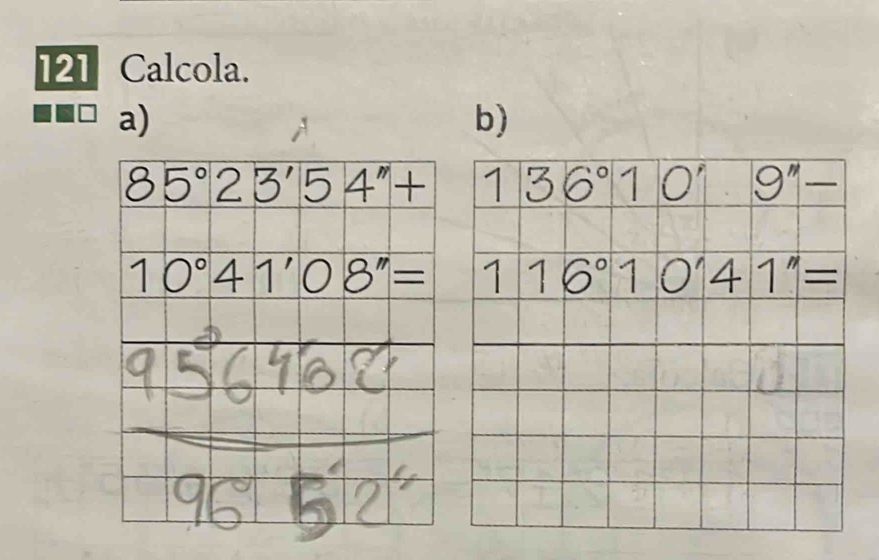 121 Calcola.
a)
85°23'54"+
10°41'08"=
95°64'62"
96° 5'2"
b)
136°10' 9"−
116°10'41"=